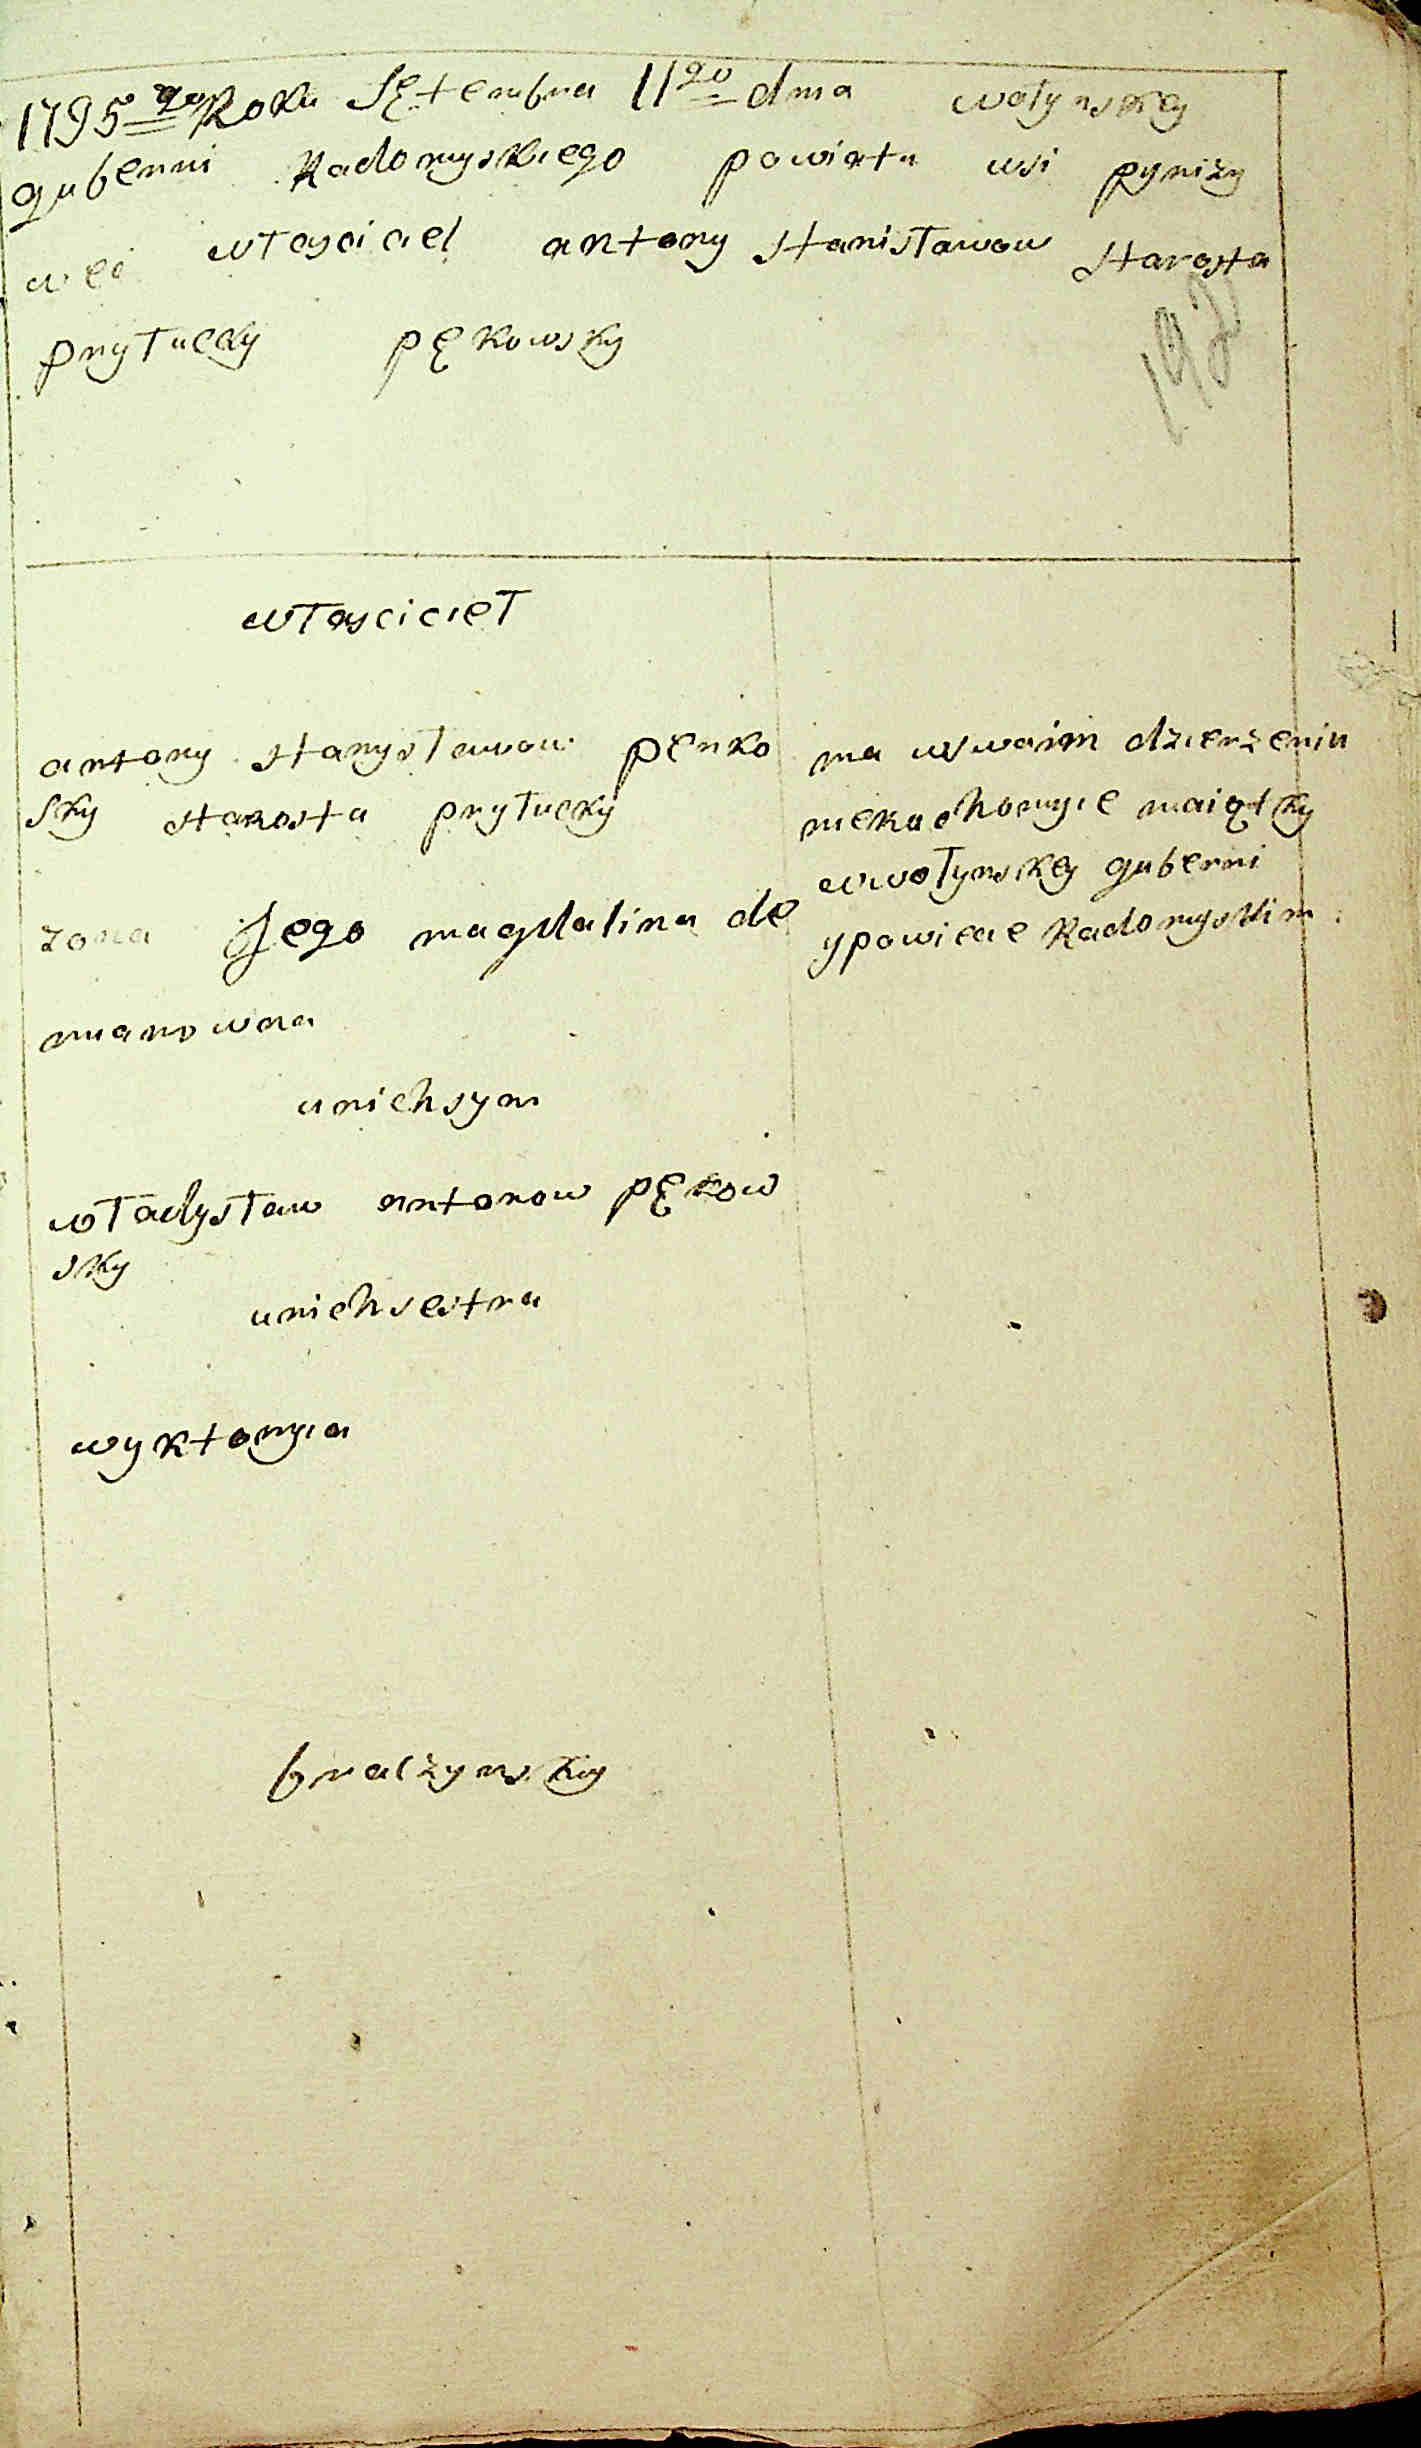 1795 go Roku Sętembra 11 go dnia wołynskey
guberni Radomyskiego powiatu wsi pyrizy
wei własciciel antony Stanisławow Starosta
prytucky pękowsky
192
własciciel
antony Stanysławow penko
sky starosta prytucky
zona Jego magdalina de
mianowna
unich syn
władysław antonow pękow
sky
unich sestra
wyktoryia
ma w swoim dzierzeniu
nieruchomyie maiątky
w wołynskey guberni
y powiecie Radomyskim
bralzynsky